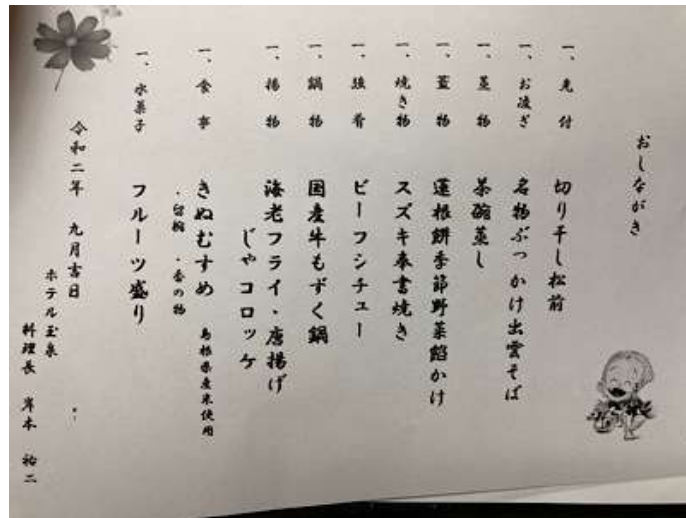 おしながき
一、先付 切り干し松前
一、お凌ぎ 名物ぶっかけ出雲そば
一、蒸物 茶碗蒸し
一、蓋物 蓮根餅季節野菜餡かけ
一、焼き物 スズキ奉書焼き
一、強肴 ビーフシチュー
一、鍋物 国産牛もずく鍋
一、揚物 海老フライ・唐揚げ
じゃコロッケ
一、食事 きぬむすめ 島根県産米使用
・留椀 ・香の物
一、水菓子 フルーツ盛り
令和二年 九月吉日
ホテル玉泉
料理長 岸本 祐二